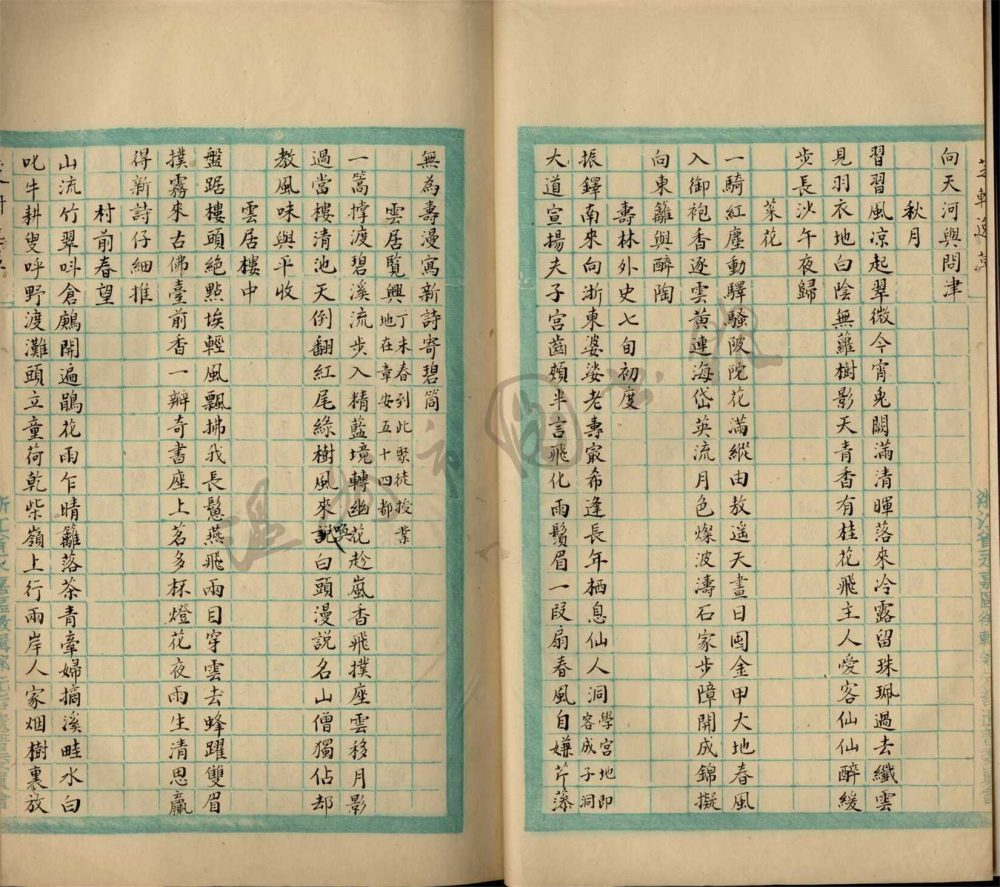 向天河與問津
秋月
習習風凉起翠微今宵兎闕滿清暉落來冷露留珠珮過去纖雲
見羽衣地白陰無蘿樹影天青香有桂花飛主人愛客仙仙醉緩
步長沙午夜歸
菜花
一騎紅塵動驛騷陂陀花滿縱由敖遥天晝日囤金甲大地春風
入御袍香逐雲黄連海岱英流月色燦波濤石家步障開成錦擬
向東籬與醉陶
壽林外史七旬初度
振鐸南來向浙東婆娑老壽㝡希逢長年栖息仙人洞學宮地即容成子洞
大道宣揚夫子宮齒頰半言飛化雨鬚眉一段扇春風自嫌芹藻
無為壽漫寫新詩寄碧筒
雲居覽興丁未春到此聚徒授業地在章安五十四都
一篙撐渡碧溪流步入精藍境轉幽花趁嵐香飛撲座雲移月影
過當樓清池天倒翻紅尾綠樹風來哭白頭漫説名山僧獨佔却
教風味與平收
雲居樓中
盤踞樓頭絕㸃埃輕風飄拂我長鬆燕飛雨目穿雲去蜂躍雙眉
撲霧來古佛臺前香一瓣奇書座上茗多杯燈花夜雨生清思贏
得新詩仔細推
村前春望
山流竹翠呌倉鶊開遍鵑花雨乍晴籬落茶青牽婦摘溪畦水白
叱牛耕叟呼野渡灘頭立童荷乾柴嶺上行兩岸人家烟樹裏放